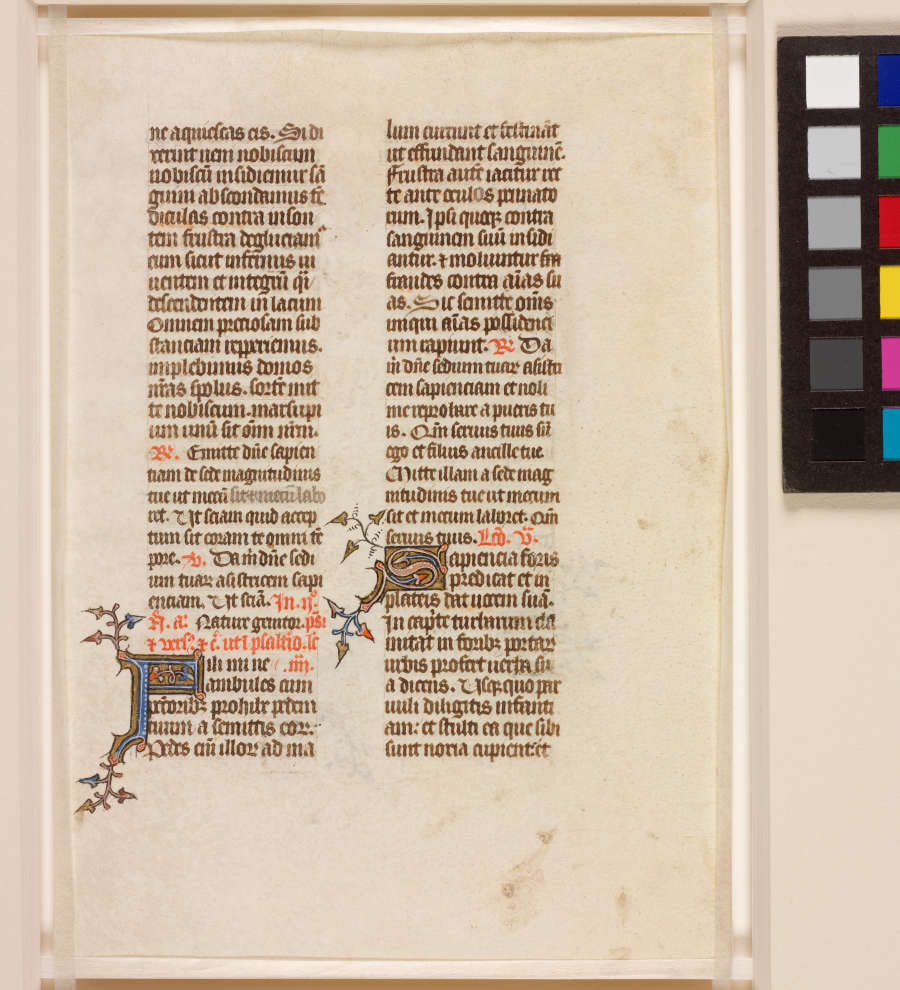 ne acquiescas eis. Si di
xerint veni nobiscum
nobiscū insidiemur sā
guini abscondamus tē
diculas contra inson
tem frustra deglutiam᷒
eum sicut infernus vi
uentem et integrū q̄ſi
descendentem in lacum
Omnem preciosam sub
stanciam repperiemus.
implebimus domos
nr̄as spolijs. sortē mit
te nobiscum. marsupi
um unū sit om̄ nr̄m.
R̸. Emitte dn̄e sapien
tiam de sede magnitudinis
tue ut mecū sit et mecū labo
ret. Ut sciam quid accep
tum sit coram te omni tē
pore. v̄. Da m̄ dn̄e sedi
um tuaꝝ asistricem sapi
enciam. Ut sciā. In .ij°.
N̄. a᷒. Natus genitor. pſi
⁊ vers᷒. ⁊ c̄. ut ī psaltio. lc̄
Fili mi ne .iiij.
ambules cum
peccatoribꝫ prohibe pedem
tuum a semitis eoꝝ.
Pedes eni᷒ illoꝝ ad ma
lum currunt et festināt
ut effundant sanguinē.
Frustra autē iacitur re
te ante oculos pennato
rum. Ipsi quoqꝫ contra
sanguinem suū insidi
antur. ⁊ moliuntur fra
fraudes contra aīas su
as. Sic semite om̄is
auari aīas possidenci
um rapiunt. R̸ Da
m̄ dn̄e sedium tuaꝝ asistri
cem sapienciam et noli
me reprobare a pueris tu
is. Qm̄ seruus tuus sū
ego et filius ancille tue.
Mitte illam a sede mag
nitudinis tue ut mecum
sit et mecum laboret. Qm̄
seruus tuus. Lcō. v̄.
Sapiencia foris
predicat et in
plateis dat vocem suā.
In capite turbarum cla
mitat in foribꝫ portaꝝ
urbis profert verba su
a dicens. Usqꝫquo par
uuli diligitis infanti
am: et stulti ea que sibi
sunt noxia cupient: et